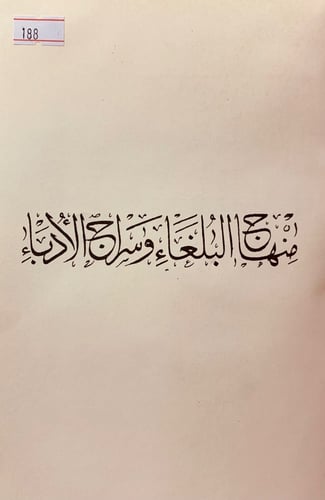 188
منهاج البلغاء وسراج الأدباء